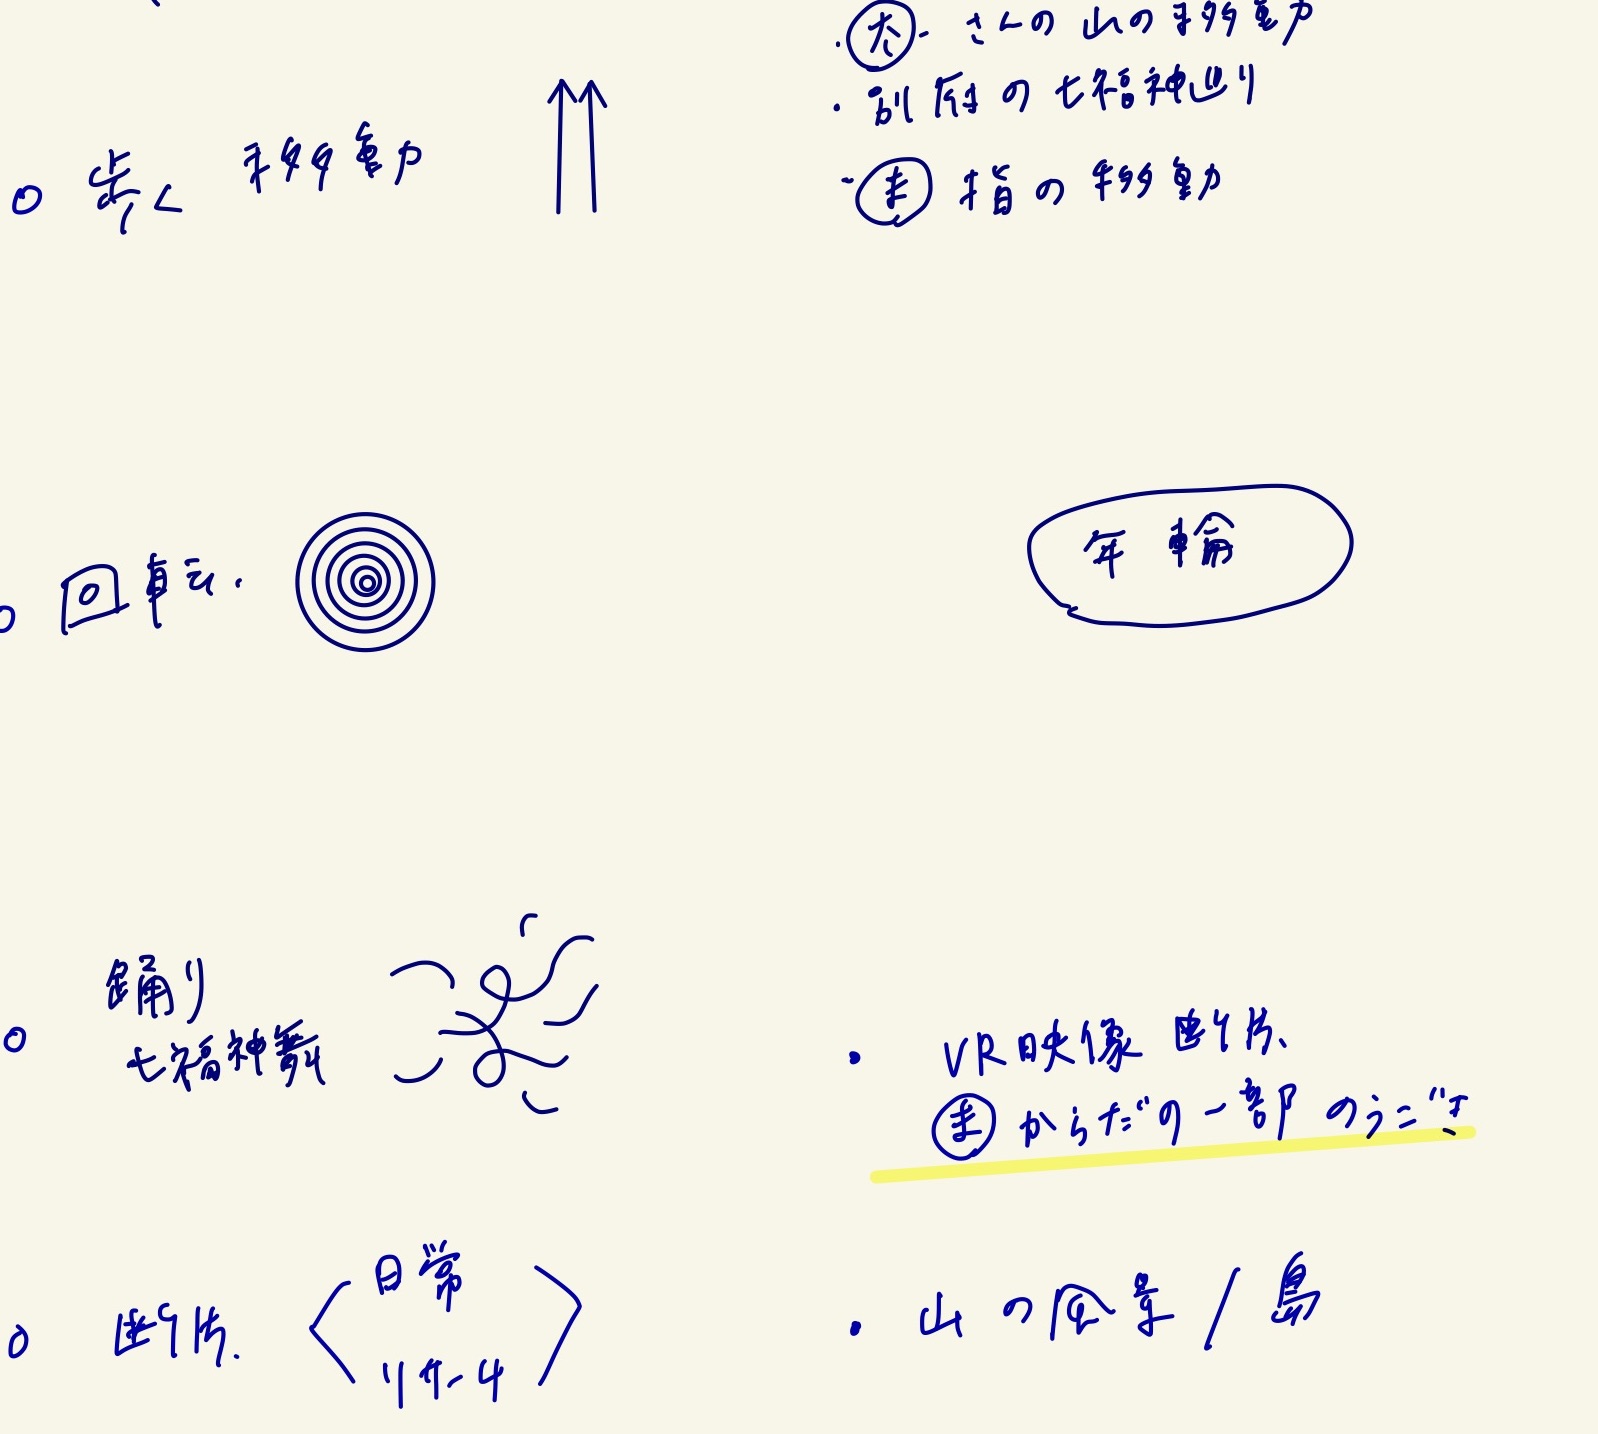 太 さんの山の移動
・別府の七福神巡り
・ま 指の移動
○ 歩く 移動
○ 回転.
年輪
○ 踊り
七福神舞
・VR映像 断片、
ま からだの一部のうごき
○ 断片.
日常
リサーチ
・山の風景/島